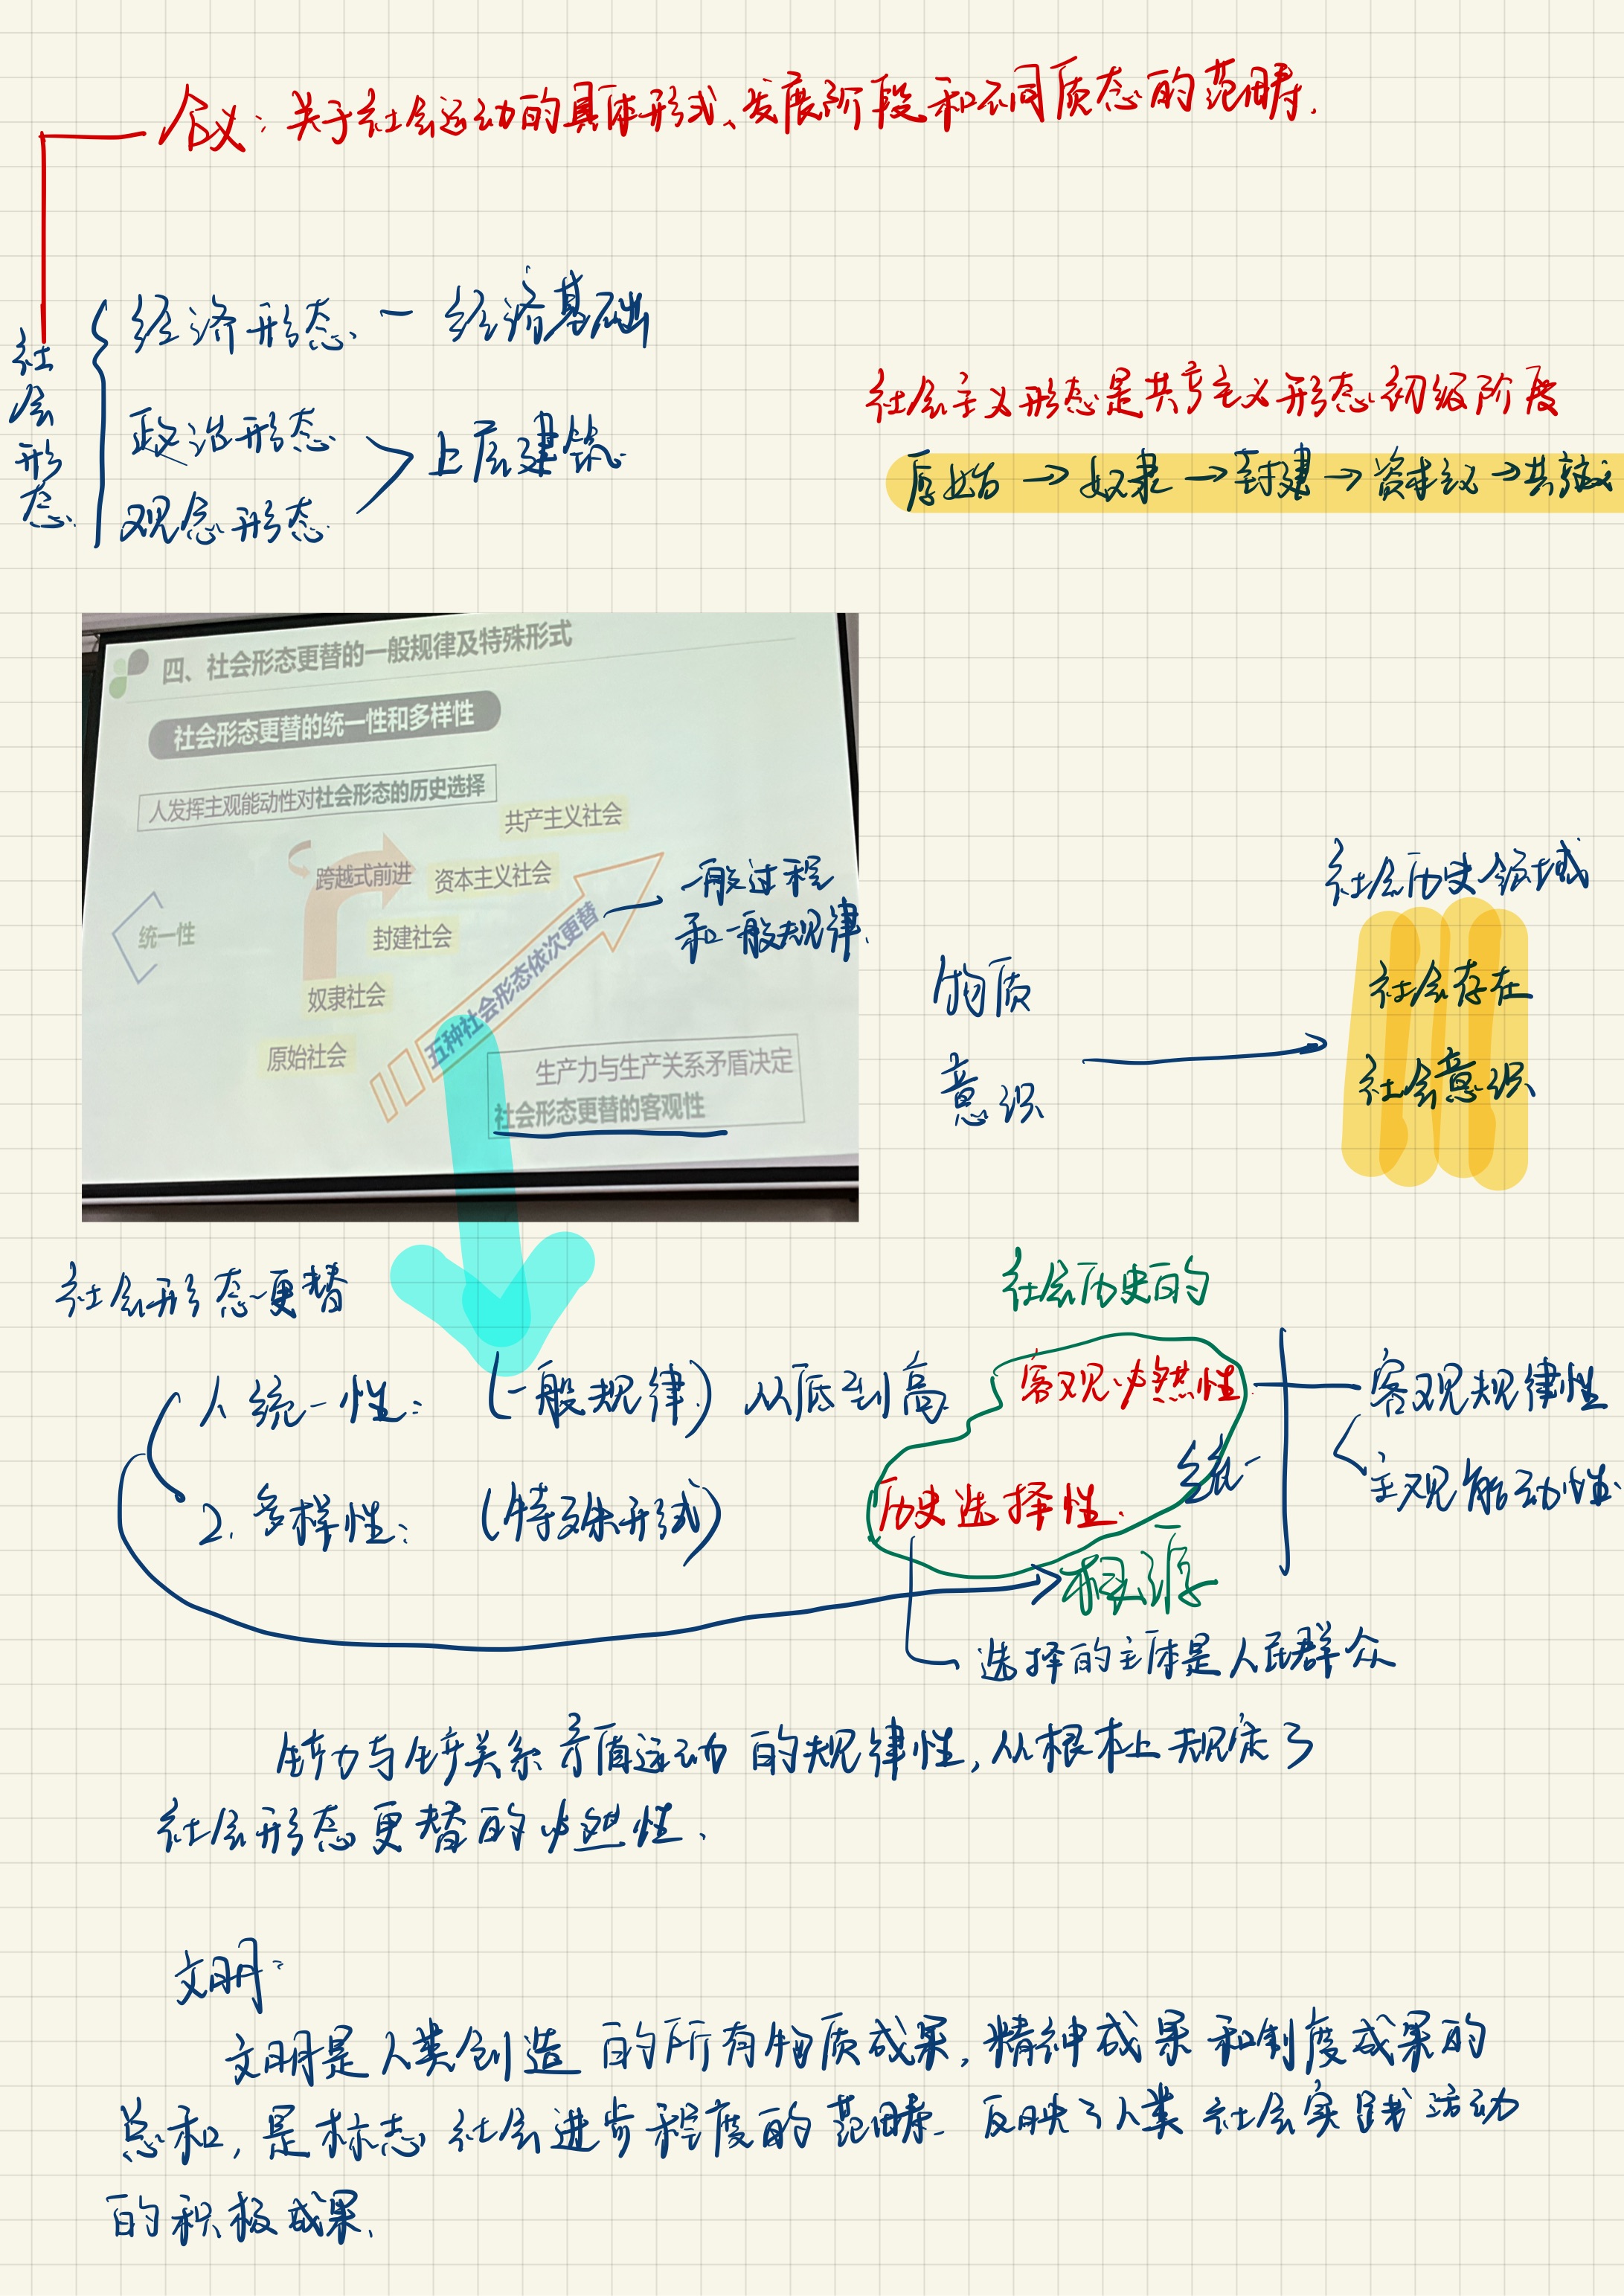 含义：关于社会运动的具体形式、发展阶段和不同质态的范畴.
社会形态
经济形态 — 经济基础
政治形态
观念形态
上层建筑
社会主义形态是共产主义形态初级阶段
原始→奴隶→封建→资本主义→共产主义
四、社会形态更替的一般规律及特殊形式
社会形态更替的统一性和多样性
人发挥主观能动性对社会形态的历史选择
共产主义社会
跨越式前进
资本主义社会
统一性
封建社会
奴隶社会
原始社会
五种社会形态依次更替
生产力与生产关系矛盾决定
社会形态更替的客观性
一般过程
和一般规律.
社会历史领域
物质
意识
社会存在
社会意识
社会形态更替
1. 统一性：（一般规律）从底到高
2. 多样性：（特殊形式）
社会历史的
客观必然性
统一
历史选择性.
根源
客观规律性
主观能动性.
选择的主体是人民群众
生产力与生产关系矛盾运动的规律性,从根本上规定了
社会形态更替的必然性.
文明：
文明是人类创造的所有物质成果,精神成果和制度成果的
总和,是标志社会进步程度的范畴.反映了人类社会实践活动
的积极成果.